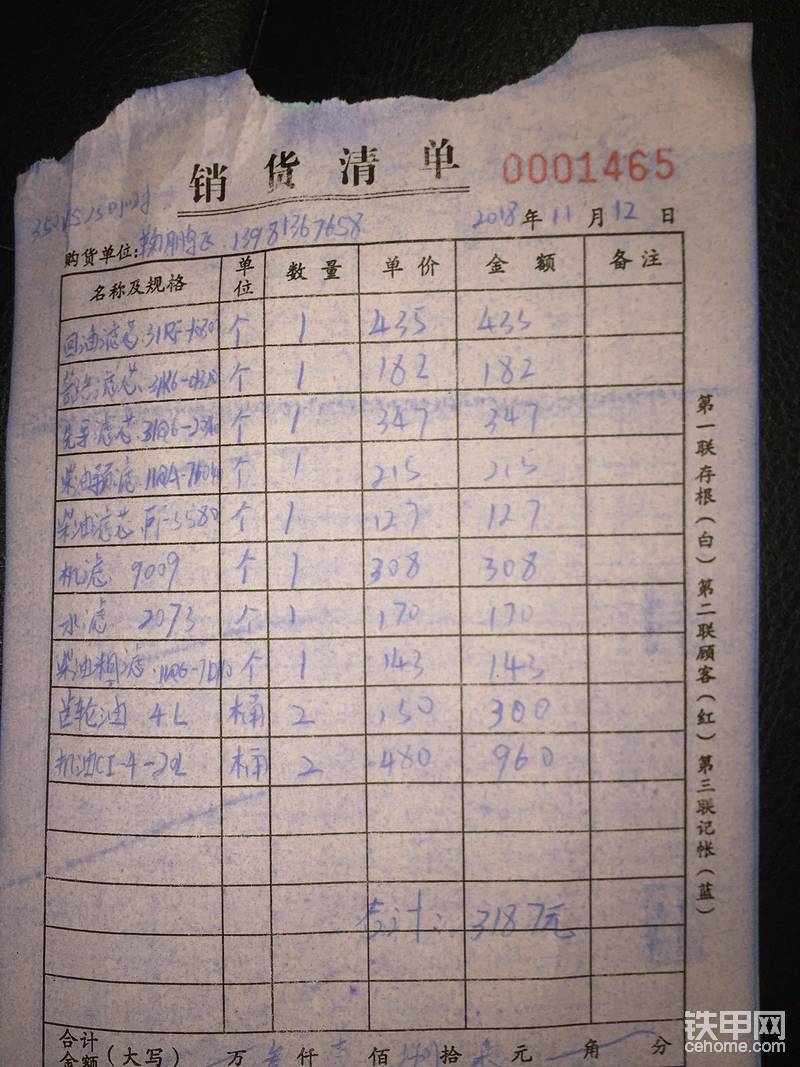 销货清单 0001465
2018年11月12日
购货单位: 13981367658
名称及规格 单位 数量 单价 金额 备注
回油滤芯 个 1 435 435
滤芯 个 1 182 182
先导滤芯 个 1 347 347
柴油预滤 个 1 215 215
柴油滤芯 个 1 127 127
机滤 9009 个 1 308 308
水滤 2073 个 1 170 170
柴油 滤 个 1 143 143
齿轮油 4L 桶 2 150 300
机油CI-4-20L 桶 2 480 960
总计: 3187元
合计金额(大写) 万 叁仟 壹佰 捌拾 柒元 角 分
第一联存根(白) 第二联顾客(红) 第三联记帐(蓝)
铁甲网
cehome.com